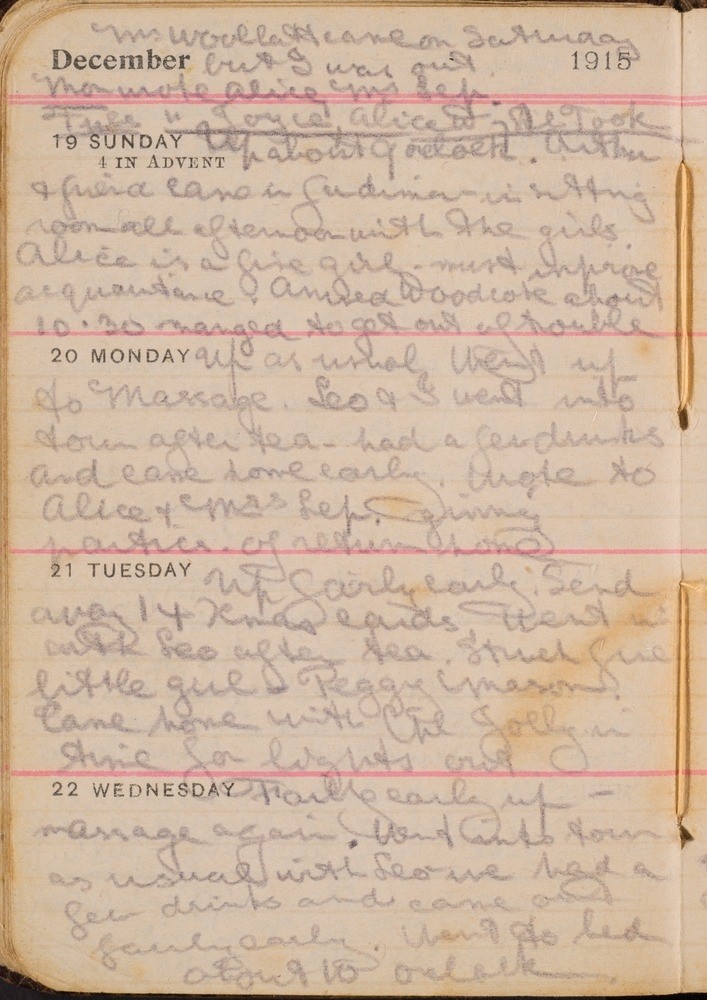 Mrs Woollatt came on Saturday
December but I was out. 1915
Mon wrote Alice, Mrs Sep.
Tues " Joyce, Alice
19 SUNDAY Up about 9 oclock. Arthur
4 IN ADVENT
& friend came in for dinner - in sitting
room all afternoon with the girls
Alice is a fine girl - must improve
acquaintance. Arrived Woodcote about
10.30 manged to get out of trouble
20 MONDAY Up as usual. Went up
to Massage. Leo & I went into
town after tea - had a few drinks
and came home early. Wrote to
Alice & Mrs Sep. giving
partics. of return home
21 TUESDAY Up fairly early. Send
away 14 Xmas cards. Went in
with Leo after tea. Struck fine
little girl - Peggy Mason.
Came home with Cpl Jolly in
time for lights out
22 WEDNESDAY Fairly early up -
massage again. Went into town
as usual with Leo we had a
few drinks and came out
fairly early. Went to bed
about 10 oclock.